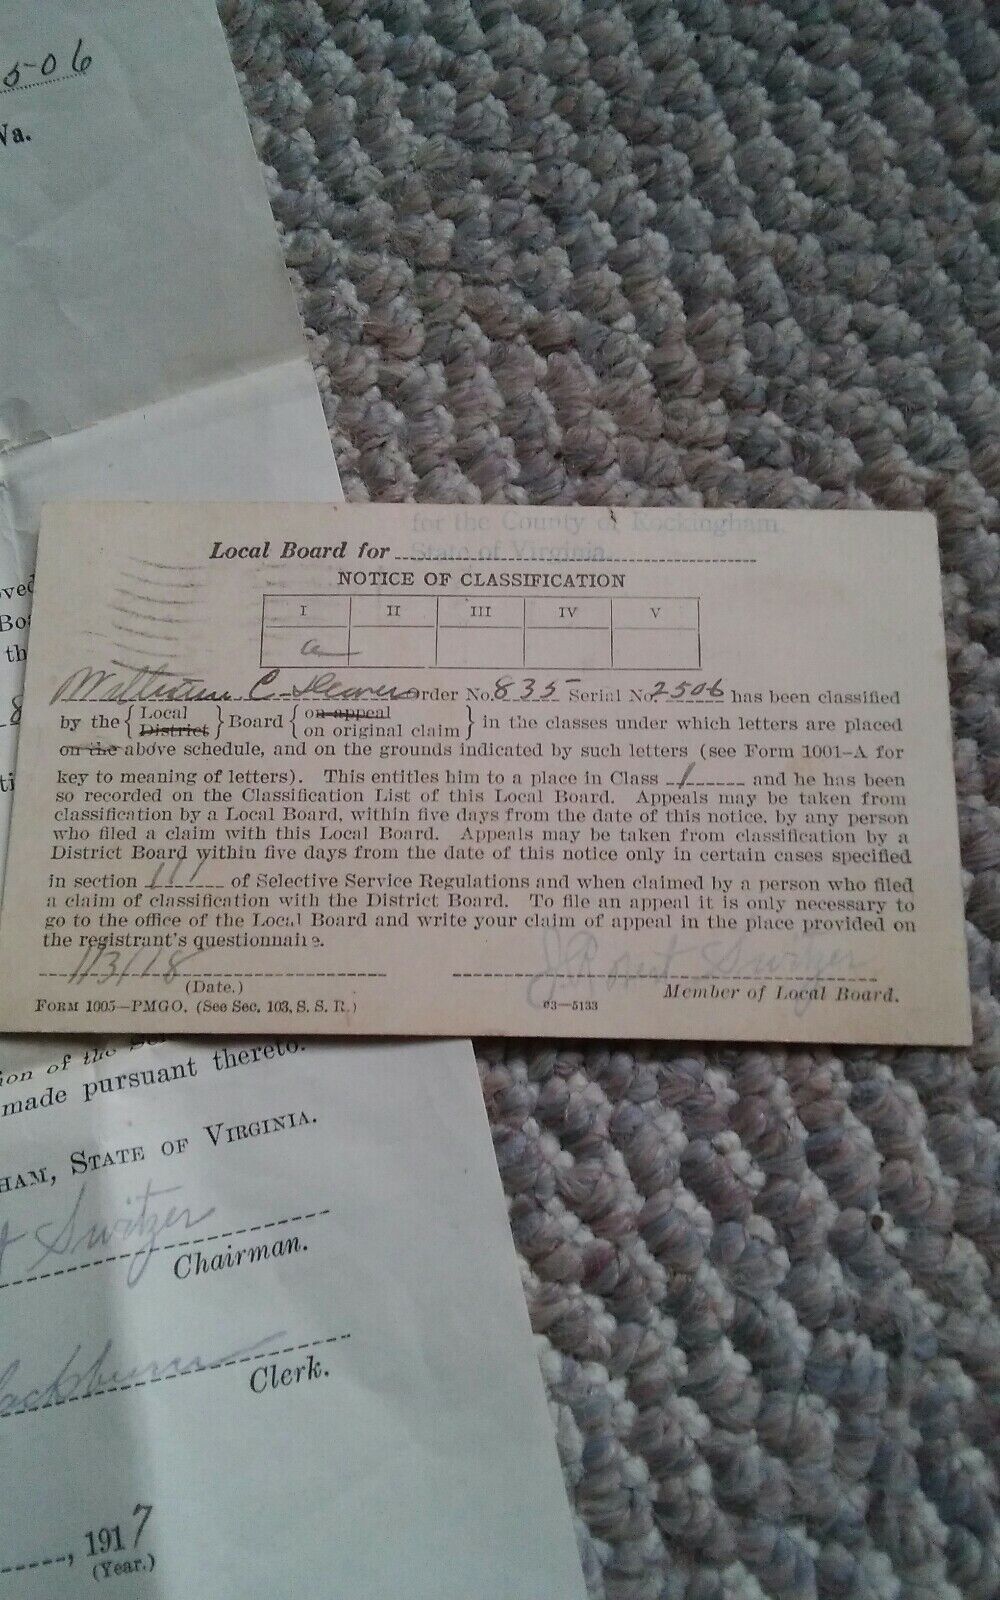 506
Va.
for the County of Rockingham,
Local Board for State of Virginia.
NOTICE OF CLASSIFICATION
I II III IV V
a
C. Order No. 835 Serial No. 2506 has been classified
by the { Local District } Board { on appeal on original claim } in the classes under which letters are placed
on the above schedule, and on the grounds indicated by such letters (see Form 1001–A for
key to meaning of letters). This entitles him to a place in Class 1 and he has been
so recorded on the Classification List of this Local Board. Appeals may be taken from
classification by a Local Board, within five days from the date of this notice, by any person
who filed a claim with this Local Board. Appeals may be taken from classification by a
District Board within five days from the date of this notice only in certain cases specified
in section 111 of Selective Service Regulations and when claimed by a person who filed
a claim of classification with the District Board. To file an appeal it is only necessary to
go to the office of the Local Board and write your claim of appeal in the place provided on
the registrant's questionnaire.
J. Robert Switzer
(Date.)
Member of Local Board.
Form 1005—PMGO. (See Sec. 103, S. S. R.) 03—5133
ion of the
made pursuant thereto.
HAM, State of Virginia.
Switzer
Chairman.
Clerk.
, 1917
(Year.)